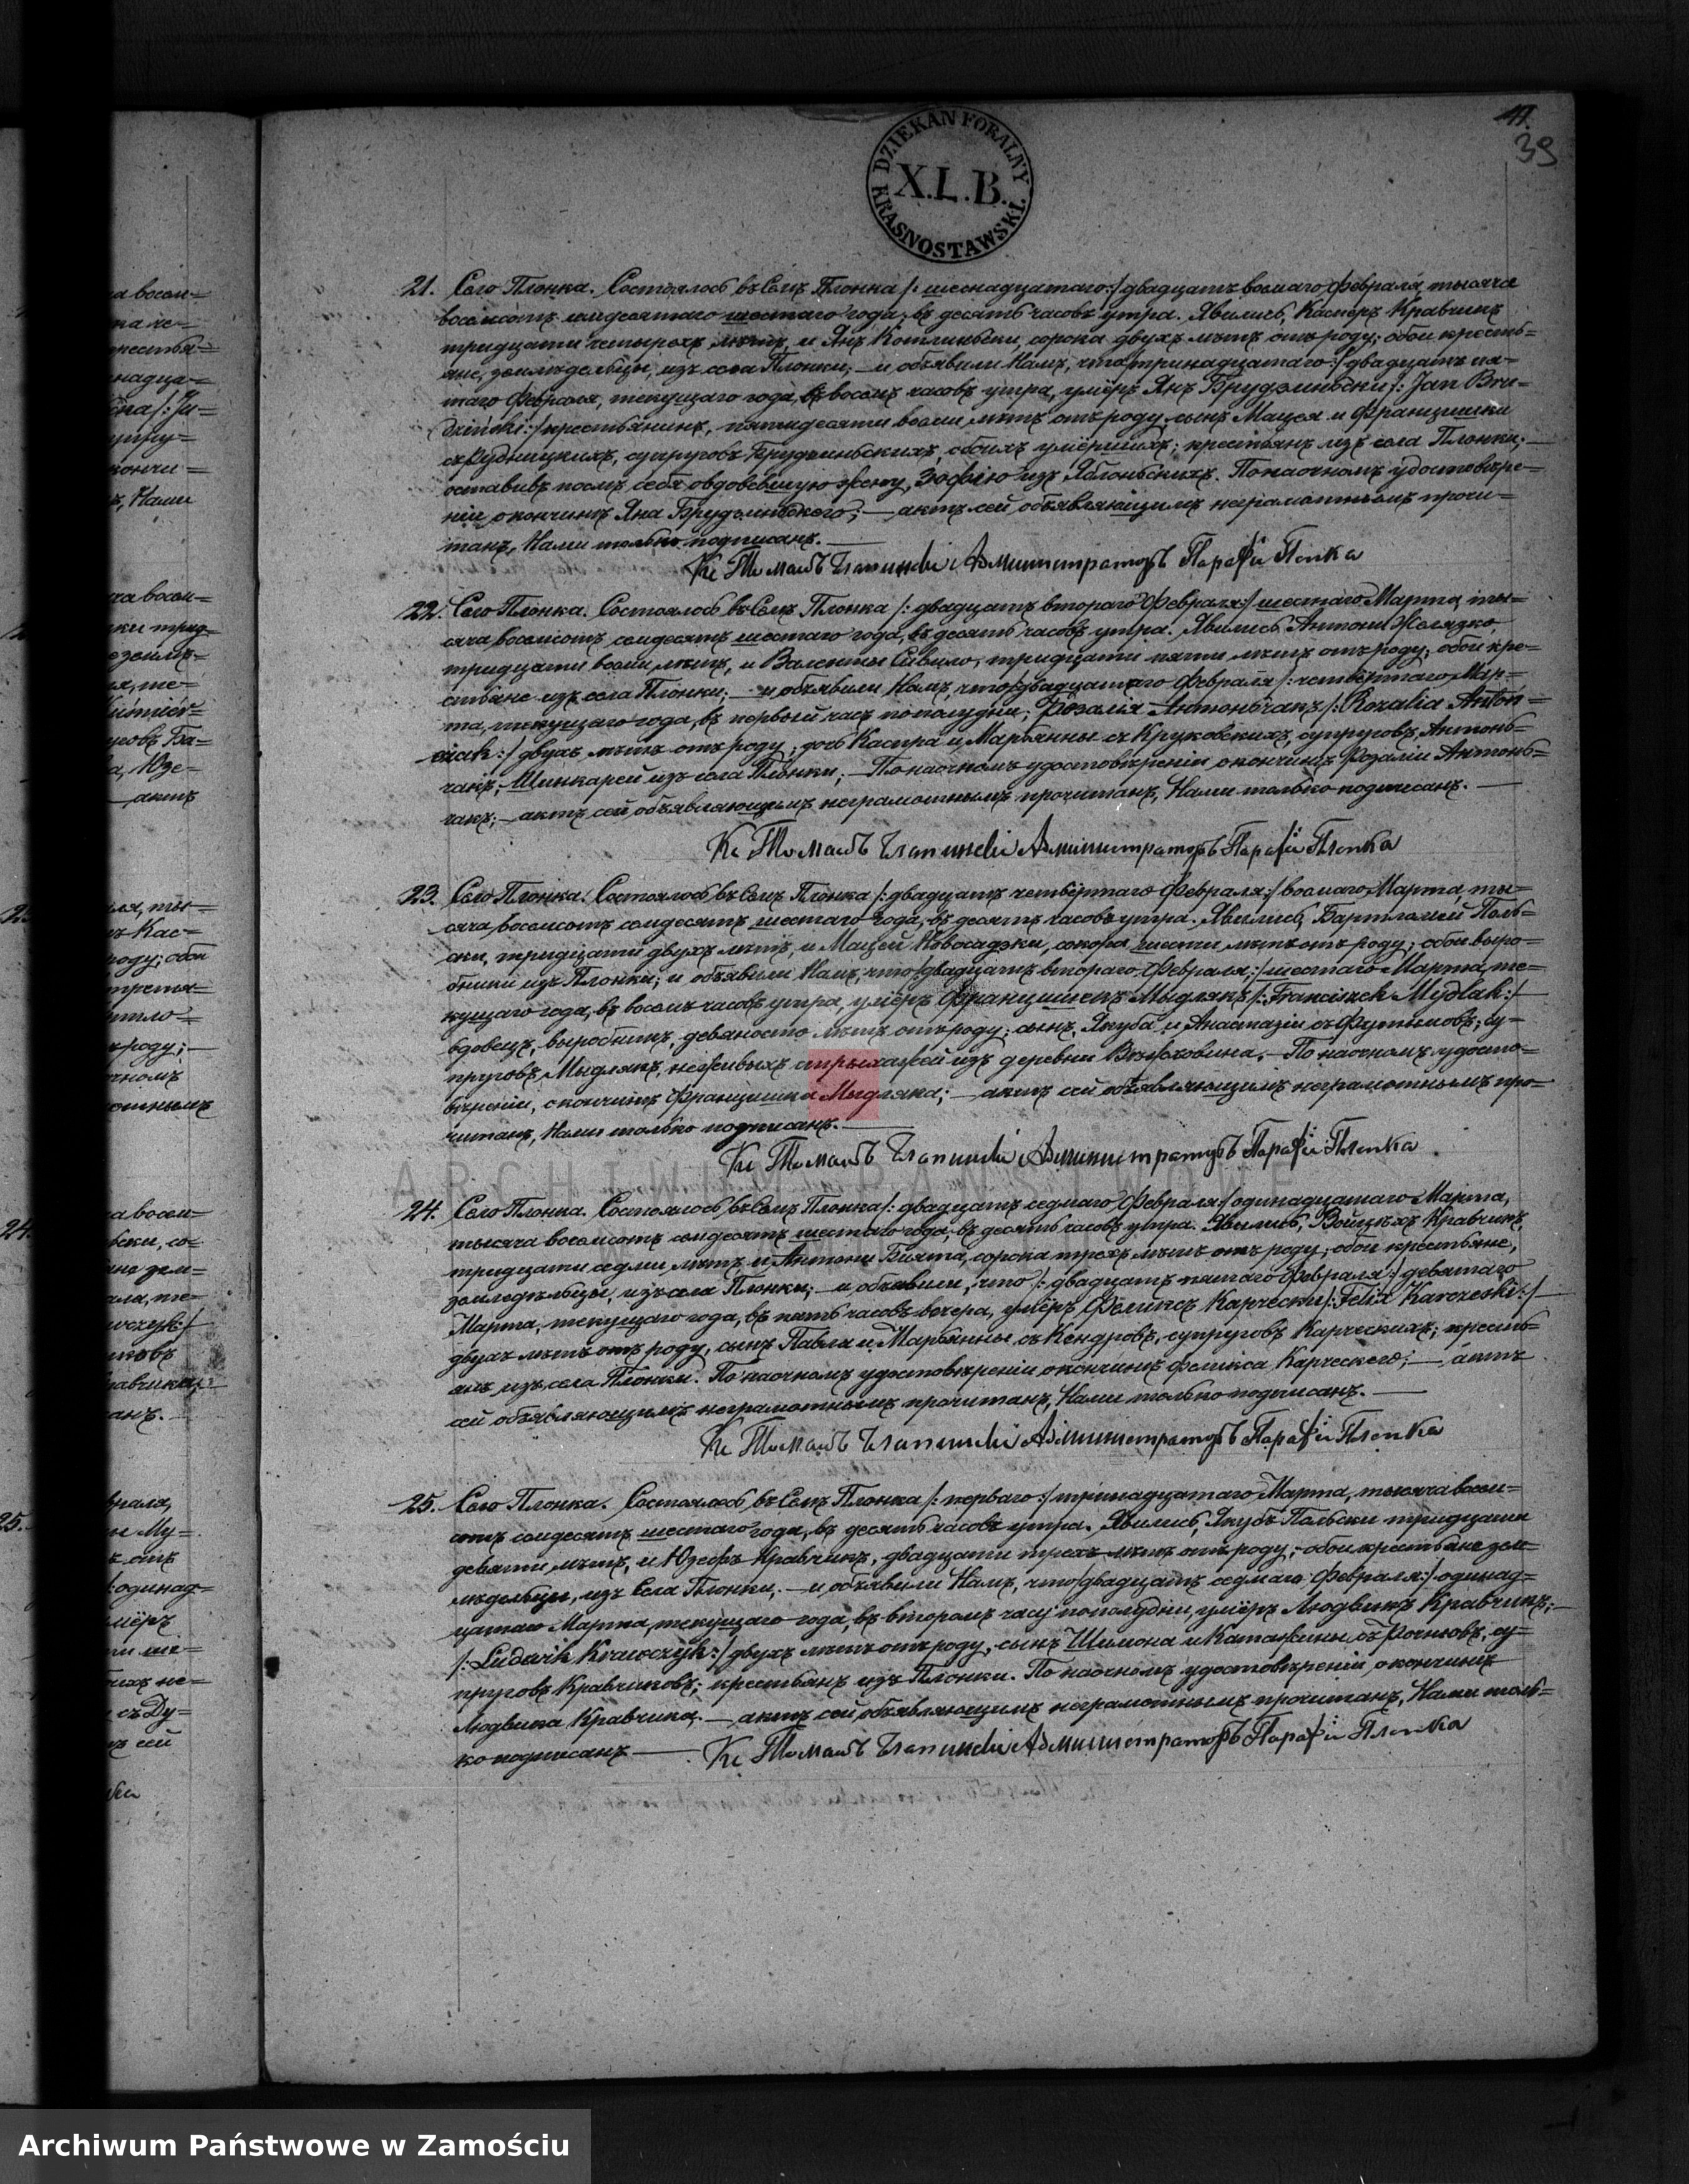 11.
39
DZIEKAN FORALNY
X.L.B.
KRASNOSTAWSKI.
21. Село Плонка. Состоялось въ Селѣ Плонка /: шеснадцатаго :/ двадцать восмаго Февраля, тысяча
восемсотъ семдесятаго шестаго года, въ десять часовъ утра. Явились, Касперъ Кравчикъ
тридцати четырехъ лѣтъ, и Янъ Котлиньски, сорока двухъ лѣтъ отъ роду; обои кресть-
яне, земледѣльцы, изъ села Плонки, — и объявили Намъ, что /: тринадцатаго :/ двадцать пя-
таго Февраля, текущаго года, въ восемь часовъ утра, умёръ Янъ Брудзиньски /: Jan Bru-
dzinski :/ крестьянинъ, пятидесяти восми лѣтъ отъ роду, сынъ Мацея и Францишки
съ Рудницкихъ, супруговъ Брудзиньскихъ, обоихъ умёршихъ; крестьянъ изъ села Плонки; —
оставивъ послѣ себя овдовевшую жену, Зофію изъ Яблоньскихъ. По наочномъ удостовѣре-
ніи, окончинѣ Яна Брудзиньскего; — актъ сей объявляющимъ неграмотнымъ прочи-
танъ, Нами только подписанъ. —
Кс Томашъ Администраторъ Парафіи Плонка
22. Село Плонка. Состоялось въ Селѣ Плонка /: двадцать втораго Февраля :/ шестаго Марта, ты-
сяча восемсотъ семдесятъ шестаго года, въ десять часовъ утра. Явились Антони Желязко,
тридцати восми лѣтъ, и Валенты Сивило, тридцати пяти лѣтъ отъ роду, обои кре-
стьяне изъ села Плонки; — и объявили Намъ, что /: двадцатаго Февраля /: четвёртаго Мар-
та, текущаго года, въ первый часъ пополудни; Розалія Антоньчакъ /: Rozalia Anton-
czak :/ двухъ лѣтъ отъ роду; дочь Каспра и Марьянны съ Круковскихъ, супруговъ Антонь-
чакъ; Шинкарей изъ села Плонки; — По наочномъ удостовѣреніи окончинѣ Розаліи Антонь-
чакъ; — актъ сей объявляющимъ неграмотнымъ прочитанъ, Нами только подписанъ. —
Кс Томашъ Администраторъ Парафіи Плонка
23. Село Плонка. Состоялось въ Селѣ Плонка /: двадцать четвёртаго Февраля :/ восмаго Марта, ты-
сяча восемсотъ семдесятъ шестаго года, въ десять часовъ утра. Явились, Бартломей Поль-
ски, тридцати двухъ лѣтъ, и Мацей Новосадзки, сокора шести лѣтъ отъ роду; обои выро-
бники изъ Плонки; и объявили Намъ, что /: двадцать втораго Февраля :/ шестаго Марта, те-
кущаго года, въ восемь часовъ утра, умёръ Францишекъ Мыдлякъ /: Franciszek Mydlak :/ —
вдовецъ, выробникъ, девяносто лѣтъ отъ роду; сынъ, Якуба и Анастазіи съ су-
пруговъ Мыдлякъ, неживыхъ изъ деревни — По наочномъ удосто-
вѣреніи, окончинѣ Францишка Мыдляка; — актъ сей объявляющимъ неграмотнымъ про-
читанъ, Нами только подписанъ. —
Кс Томашъ Администраторъ Парафіи Плонка
ARCHIWUM PAŃSTWOWE
24. Село Плонка. Состоялось въ Селѣ Плонка /: двадцать седмаго Февраля :/ одинадцатаго Марта,
тысяча восемсотъ семдесятъ шестаго года, въ десять часовъ утра. Явились, Войцѣхъ Кравчикъ,
тридцати седми лѣтъ, и Антони Бията, сорока трехъ лѣтъ отъ роду; обои крестьяне,
земледѣльцы, изъ села Плонки; — и объявили, что /: двадцать пятаго Февраля :/ девятаго
Марта, текущаго года, въ пять часовъ вечера, умёръ Феликсъ Карчески /: Felix Karczeski :/ —
двухъ лѣтъ отъ роду, сынъ Павла и Марьянны съ Кендровъ, супруговъ Карческихъ; кресть-
янъ изъ села Плонки. По наочномъ удостовѣреніи окончинѣ Феликса Карческего; — актъ
сей объявляющимъ неграмотнымъ прочитанъ, Нами только подписанъ. —
Кс Томашъ Администраторъ Парафіи Плонка
25. Село Плонка. Состоялось въ Селѣ Плонка /: перваго :/ тринадцатаго Марта, тысяча восем-
сотъ семдесятъ шестаго года, въ десять часовъ утра. Явились, Якубъ Польски тридцати
девяти лѣтъ, и Юзефъ Кравчикъ, двадцати трехъ лѣтъ отъ роду, — обои крестьяне зем-
лѣдельцы, изъ Села Плонки; — и объявили Намъ, что /: двадцать седмаго Февраля :/ одинад-
цатаго Марта, текущаго года, въ второмъ часу пополудни, умёръ Людвикъ Кравчикъ; —
/: Ludwik Krawczyk :/ двухъ лѣтъ отъ роду, сынъ Шимона и Катажины съ су-
пруговъ Кравчиковъ; крестьянъ изъ Плонки. По наочномъ удостовѣреніи, окончинѣ
Людвика Кравчика. — актъ сей объявляющимъ неграмотнымъ прочитанъ, Нами толь-
ко подписанъ — Кс Томашъ Администраторъ Парафіи Плонка
Archiwum Państwowe w Zamościu